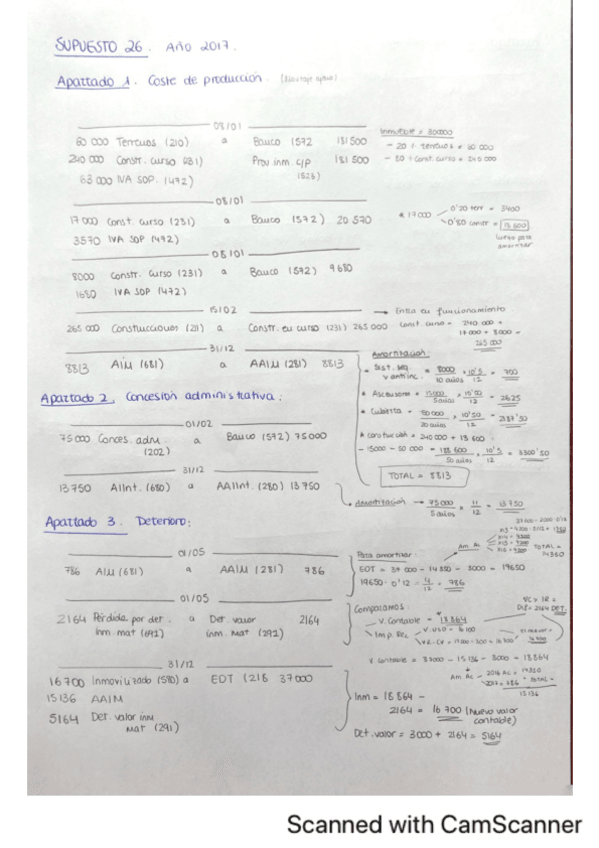 SUPUESTO 26. AÑO 2017.
Apartado 1. Coste de producción.
08/01
60 000 Terrenos (210) a Banco (572 181 500
240 000 Constr. curso (231) Prov inm c/p 181 500
63 000 IVA SOP. (472) (523)
Inmueble = 300000
- 20% terrenos = 60 000
- 80% const. curso = 240 000
08/01
17 000 Const. curso (231) a Banco (572) 20 570
3570 IVA SOP (472)
* 17000
0'20 terr = 3400
0'80 constr = 13 600
luego para amortizar
08/01
8000 Constr. curso (231) a Banco (572) 9 680
1680 IVA SOP (472)
15/02
265 000 Construcciones (211) a Constr. en curso (231) 265 000
→ Entra en funcionamiento
Const curso = 240.000 +
17 000 + 8000 =
265 000
31/12
8813 AIM (681) a AAIM (281) 8813
Amortización:
* Ascensores = 15000 / 5 años × 10'50 / 12 = 2625
* Cubierta = 50 000 / 20 años × 10'50 / 12 = 2187'50
* Construcción = 240 000 + 13 600
- 15000 - 50 000 = 188 600 / 50 años × 10'5 / 12 = 3300'50
TOTAL = 8813
Apartado 2. Concesión administrativa:
01/02
75 000 Conces. adm. (202) a Banco (572) 75 000
31/12
13 750 AIInt. (680) a AAIInt (280) 13 750
→ Amortización → 75 000 / 5 años × 11 / 12 = 13 750
Apartado 3. Deterioro:
01/05
786 AIM (681) a AAIM (281) 786
Para amortizar:
EDT = 37 000 - 14 350 - 3000 = 19650
19650. 0'12 = 4/12 = 786
01/05
2164 Pérdida por det. inm. mat (691) a Det. valor inm. mat (291) 2164
Comparamos:
- V. Contable = 18864
V. Contable = 37000 - 15 136 - 3000 = 18.864
15 136
31/12
16 700 Inmovilizado (580) a EDT (218 37 000
15 136 AAIM
5164 Det. valor inm mat (291)
Inm = 18 864 -
2164 = 16 700 (Nuevo valor contable)
Det. valor = 3000 + 2164 = 5164
Scanned with CamScanner